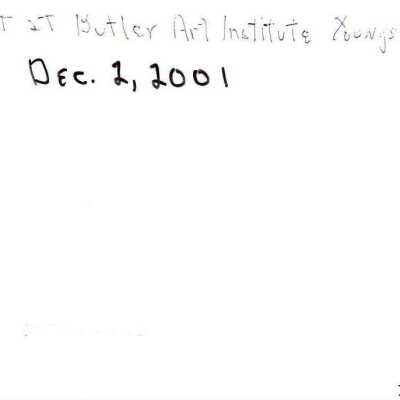 T at Butler Art Institute Youngs
Dec. 2, 2001